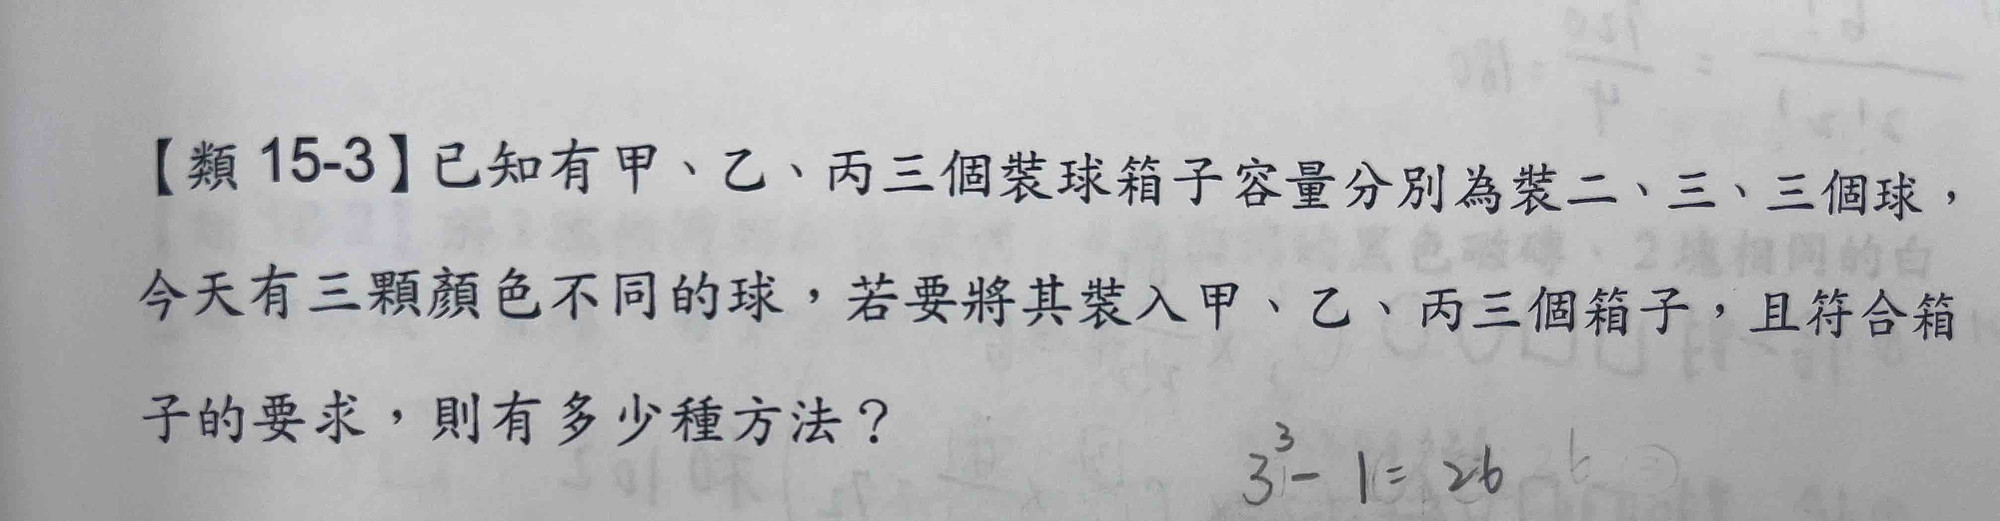 【類 15-3】已知有甲、乙、丙三個裝球箱子容量分別為裝二、三、三個球，
今天有三顆顏色不同的球，若要將其裝入甲、乙、丙三個箱子，且符合箱
子的要求，則有多少種方法？
3³- 1 = 26